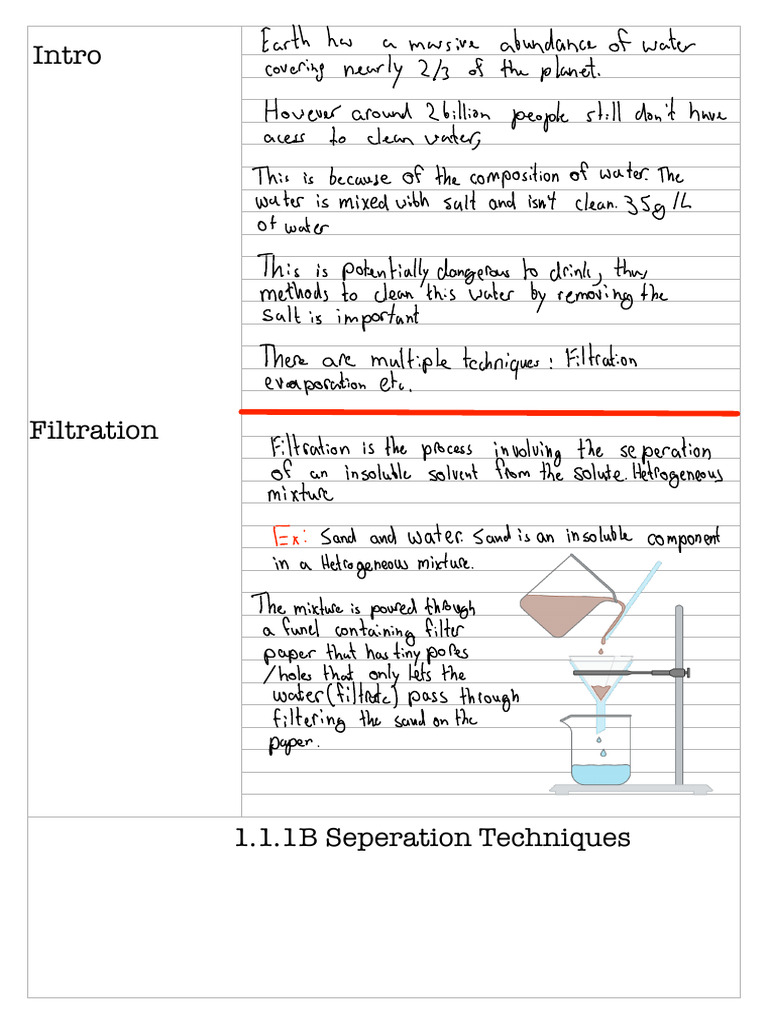 Intro
Earth has a massive abundance of water
covering nearly 2/3 of the planet.
However around 2 billion people still don't have
acess to clean water,
This is because of the composition of water. The
water is mixed with salt and isn't clean. 35g/L
of water
This is potentially dangerous to drink, thus
methods to clean this water by removing the
salt is important
There are multiple techniques: Filtration
evaporation etc.
Filtration
Filtration is the process involving the seperation
of an insoluble solvent from the solute. Hetrogeneous
mixture
Ex: Sand and water. Sand is an insoluble component
in a Hetrogeneous mixture.
The mixture is poured through
a funel containing filter
paper that has tiny pores
/holes that only lets the
water (filtrate) pass through
filtering the sand on the
paper.
1.1.1B Seperation Techniques